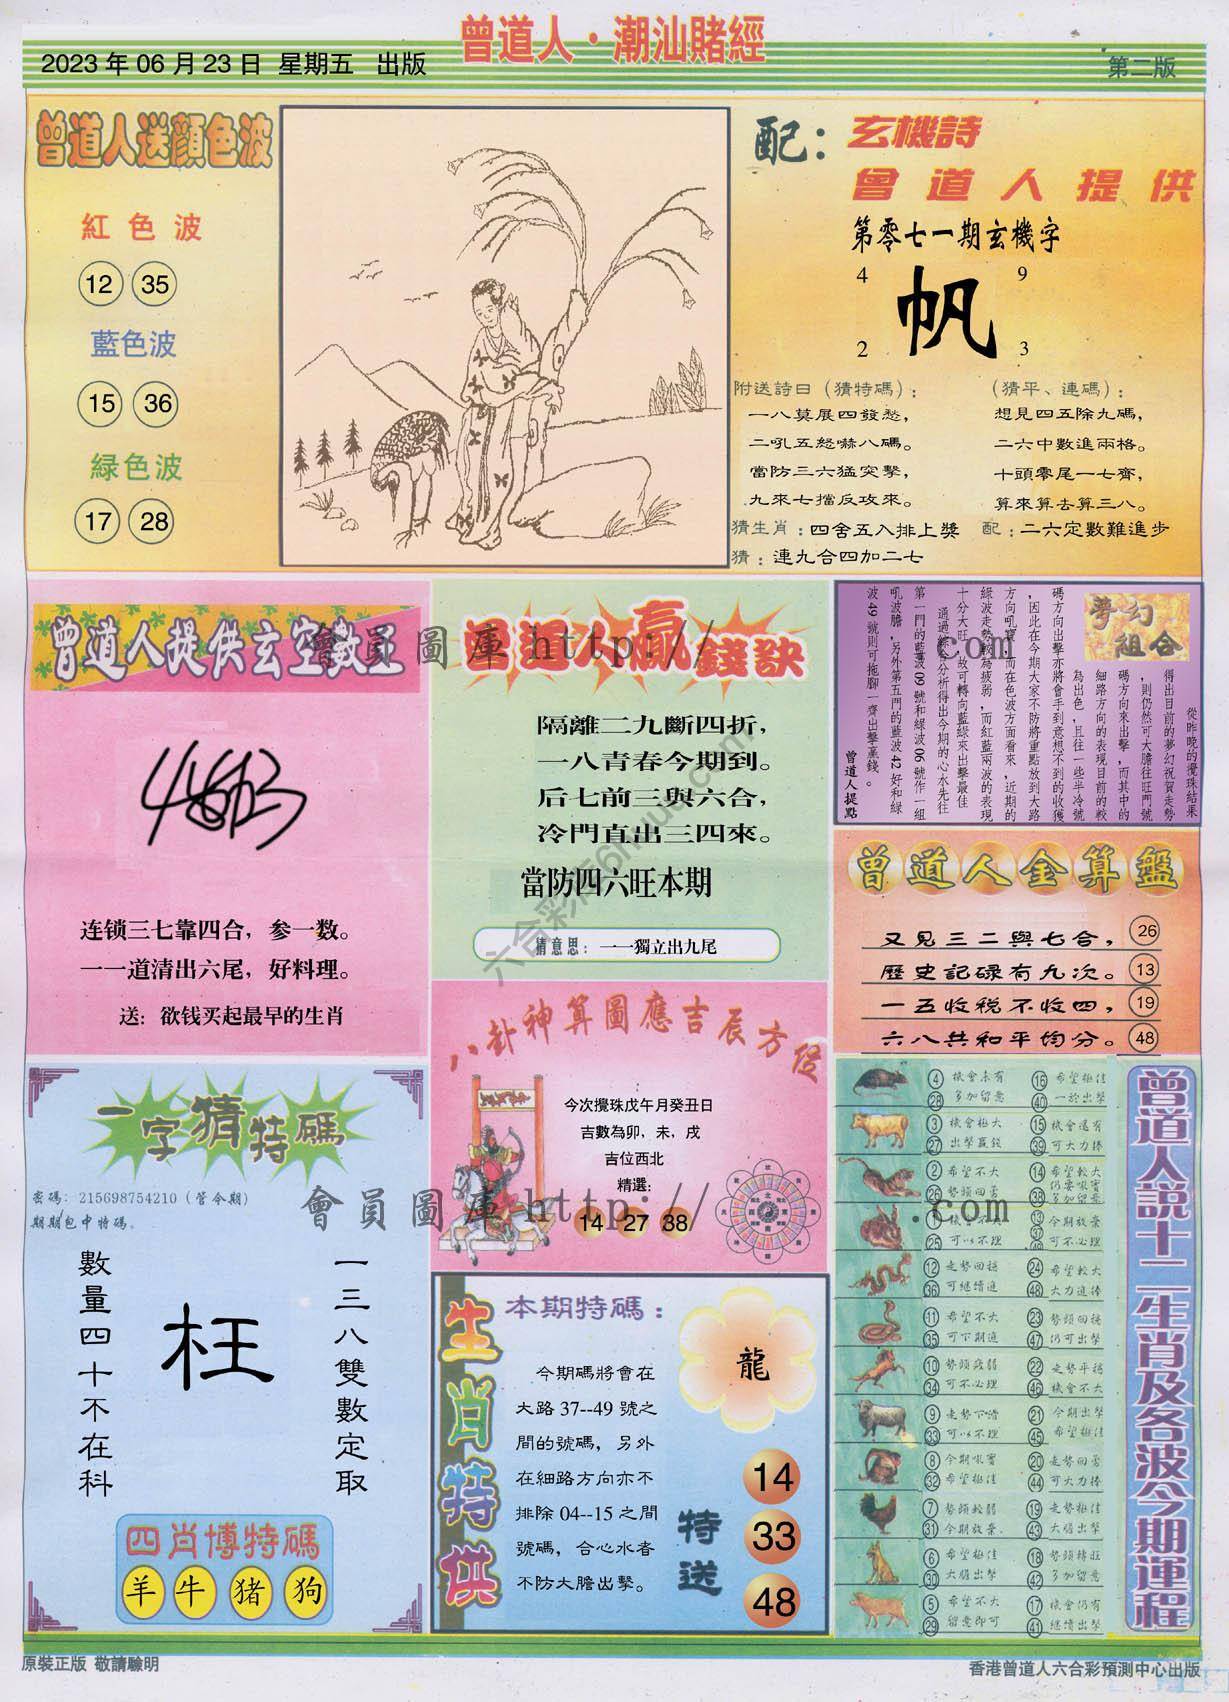 曾道人·潮汕賭經
2023年06月23日 星期五 出版
第二版
曾道人送顏色波
紅色波
12 35
藍色波
15 36
綠色波
17 28
配：玄機詩
曾道人提供
第零七一期玄機字
4 9
帆
2 3
附送詩曰（猜特碼）：
一八莫展四發愁，
二吼五怒嚇八碼。
當防三六猛突擊，
九來七擋反攻來。
（猜平、連碼）：
想見四五除九碼，
二六中數進兩格。
十頭零尾一七齊，
算來算去算三八。
猜生肖：四舍五入排上獎
配：二六定數難進步
猜：連九合四加二七
曾道人提供玄空數
连锁三七靠四合，参一数。
一一道清出六尾，好料理。
送：欲钱买起最早的生肖
曾道人贏錢訣
隔離二九斷四折，
一八青春今期到。
后七前三與六合，
冷門直出三四來。
當防四六旺本期
猜意思：一一獨立出九尾
夢幻組合
從昨晚的攪珠結果
得出目前的夢幻祝賀走勢
，則仍然可大膽往旺門號
碼方向來出擊，而其中的
細路方向的表現目前的較
為出色，且往一些半冷號
碼方向出擊亦將會手到意想不到的收獲
，因此在今期大家不防將重點放到大路
方向吼寶，而在色波方面看來，近期的
綠波走勢較為疲弱，而紅藍兩波的表現
十分大旺，故可轉向藍綠來出擊最佳
通過綜合分析得出今期的心水先往
第一門的藍波09號和綠波06號作一組
吼波膽，另外第五門的藍波42好和綠
波49號則可拖腳一齊出擊贏錢。
曾道人提點
曾道人金算盤
又見三二與七合， 26
歷史記碌有九次。 13
一五收税不收四， 19
六八共和平均分。 48
八卦神算圖應吉辰方位
今次攪珠戊午月癸丑日
吉數為卯，未，戌
吉位西北
精選：
14 27 38
一字猜特碼
密碼：215698754210（管令期）
期期包中特碼。
數量四十不在科
枉
一三八雙數定取
四肖博特碼
羊 牛 猪 狗
生肖特供
本期特碼：
龍
今期碼將會在
大路37--49號之
間的號碼，另外
在細路方向亦不
排除04--15之間
號碼，合心水者
不防大膽出擊。
特送
14
33
48
曾道人説十二生肖及各波今期運程
4 28 機會未有 多加留意
16 40 希望極佳 一於出擊
3 27 機會極大 出擊贏錢
15 39 機會還有 可大力捧
2 26 希望不大 勢頭回勇
14 38 希望較大 仍要吼實 多加留意
1 25 可以不理
13 37 49 今期放棄 可不必理
12 36 走勢回穩 可繼續追
24 48 希望較大 大力追捧
11 35 希望不大 可下期追
23 47 勢頭回穩 仍可出擊
10 34 勢頭疲弱 可不必理
22 46 走勢平穩 機會不大
9 33 走勢下滑 可以不理
21 45 今期出擊 希望極佳
8 32 今期吼實 希望極佳
20 44 走勢回勇 可大力捧
7 31 勢頭較弱 今期放棄.
19 43 走勢極佳 大膽出擊
6 30 希望極佳 大膽出擊
18 42 勢頭轉旺 多加留意
5 29 希望不大 留意即可
17 41 機會仍有 繼續出擊
原裝正版 敬請驗明
香港曾道人六合彩預測中心出版
會員圖庫 http:// .com
會員圖庫 http:// .com